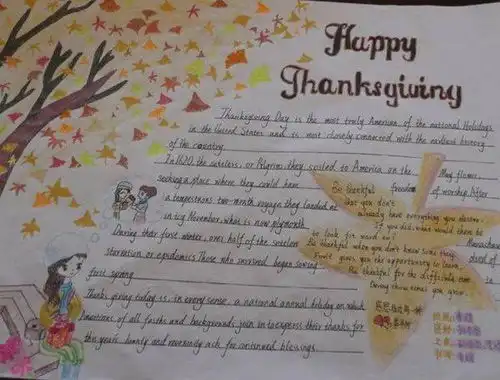 Happy
Thanksgiving
Thanksgiving Day is the most truly American of the national Holidays
in the United States and is most closely connected with the earliest history
of the country.
In 1620, the settlers, or Pilgrims, they sailed to America on the May flower,
seeking a place where they could have freedom of worship. After
a tempestuous two-month voyage they landed at
in icy November, what is now Plymouth
During their first winter, over half of the settlers died of
starvation or epidemics. Those who survived began sowing
first spring
Thanks giving today is, in every sense, a national annual holiday on which
of all faiths and backgrounds join in to express their thanks for
this year's bounty and reverently ask for continued blessings.
Be thankful
that you don't
already have everything you desire
if you did, what would there be
to look for ward to?
Be thankful when you don't know some thing
gives you the opportunity to learn
Be thankful for the difficult times
During those times you grow.